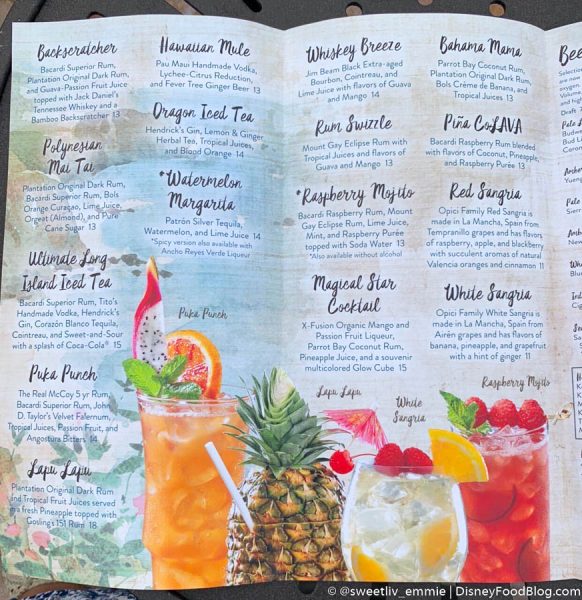 Backscratcher
Bacardi Superior Rum,
Plantation Original Dark Rum,
and Guava-Passion Fruit Juice
topped with Jack Daniel's
Tennessee Whiskey and a
Bamboo Backscratcher 13
Polynesian
Mai Tai
Plantation Original Dark Rum,
Bacardi Superior Rum, Bols
Orange Curaçao, Lime Juice,
Orgeat (Almond), and Pure
Cane Sugar 13
Ultimate Long
Island Iced Tea
Bacardi Superior Rum, Tito's
Handmade Vodka, Hendrick's
Gin, Corazón Blanco Tequila,
Cointreau, and Sweet-and-Sour
with a splash of Coca-Cola® 15
Puka Punch
The Real McCoy 5 yr Rum,
Bacardi Superior Rum, John
D. Taylor's Velvet Falernum,
Tropical Juices, Passion Fruit, and
Angostura Bitters 14
Lapu Lapu
Plantation Original Dark Rum
and Tropical Fruit Juices served
in a fresh Pineapple topped with
Gosling's 151 Rum 18
Hawaiian Mule
Pau Maui Handmade Vodka,
Lychee-Citrus Reduction,
and Fever Tree Ginger Beer 13
Dragon Iced Tea
Hendrick's Gin, Lemon & Ginger
Herbal Tea, Tropical Juices,
and Blood Orange 14
*Watermelon
Margarita
Patrón Silver Tequila,
Watermelon, and Lime Juice 14
*Spicy version also available with
Ancho Reyes Verde Liqueur
Puka Punch
Whiskey Breeze
Jim Beam Black Extra-aged
Bourbon, Cointreau, and
Lime Juice with flavors of Guava
and Mango 14
Rum Swizzle
Mount Gay Eclipse Rum with
Tropical Juices and flavors of
Guava and Mango 13
*Raspberry Mojito
Bacardi Raspberry Rum, Mount
Gay Eclipse Rum, Lime Juice,
Mint, and Raspberry Purée
topped with Soda Water 13
*Also available without alcohol
Magical Star
Cocktail
X-Fusion Organic Mango and
Passion Fruit Liqueur,
Parrot Bay Coconut Rum,
Pineapple Juice, and a souvenir
multicolored Glow Cube 15
Lapu Lapu
White
Sangria
Bahama Mama
Parrot Bay Coconut Rum,
Plantation Original Dark Rum,
Bols Crème de Banana, and
Tropical Juices 13
Piña CoLAVA
Bacardi Raspberry Rum blended
with flavors of Coconut, Pineapple,
and Raspberry Purée 13
Red Sangria
Opici Family Red Sangria is
made in La Mancha, Spain from
Tempranillo grapes and has flavors
of raspberry, apple, and blackberry
with succulent aromas of natural
Valencia oranges and cinnamon 11
White Sangria
Opici Family White Sangria is
made in La Mancha, Spain from
Airén grapes and has flavors of
banana, pineapple, and grapefruit
with a hint of ginger 11
Raspberry Mojito
© @sweetliv_emmie | DisneyFoodBlog.com